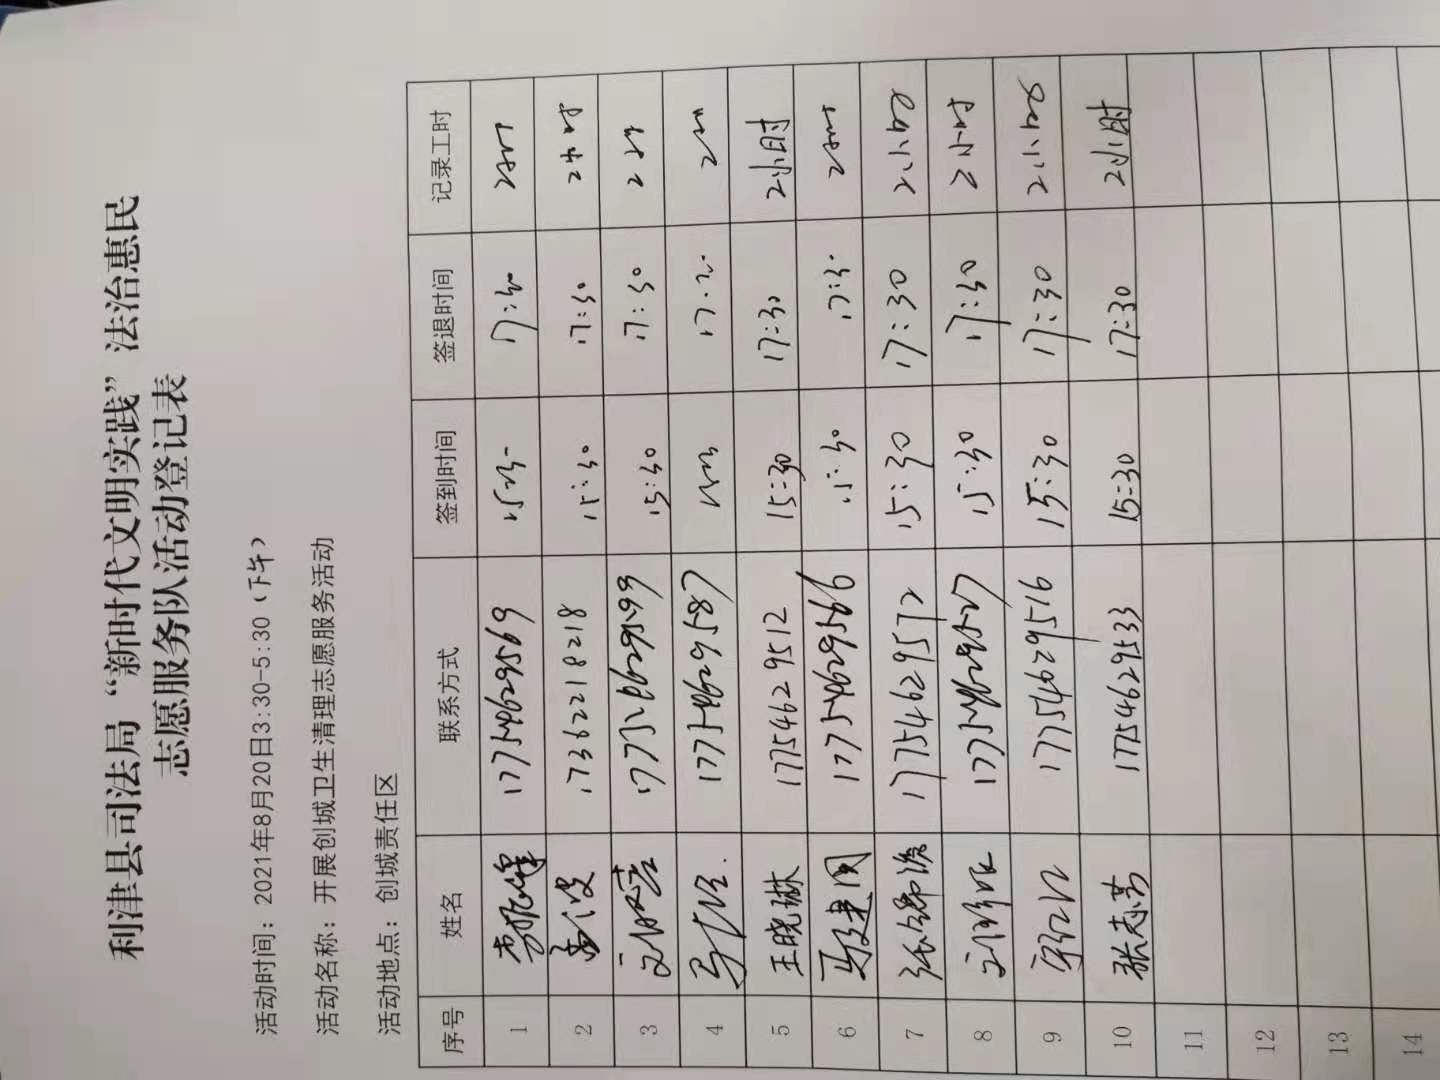 利津县司法局“新时代文明实践”法治惠民
志愿服务队活动登记表
活动时间：2021年8月20日3:30-5:30（下午）
活动名称：开展创城卫生清理志愿服务活动
活动地点：创城责任区
序号 姓名 联系方式 签到时间 签退时间 记录工时
1 17754629569 15:30 17:30
2 17362218218 15:30 17:30 2小时
3 17754629599 15:30 17:30
4 17754629587
5 王晓琳 17754629512 15:30 17:30 2小时
6 17754629566 15:30 17:30
7 17754629572 15:30 17:30 2小时
8 17754629527 15:30 17:30 2小时
9 17754629516 15:30 17:30 2小时
10 张志芳 17754629533 15:30 17:30 2小时
11
12
13
14